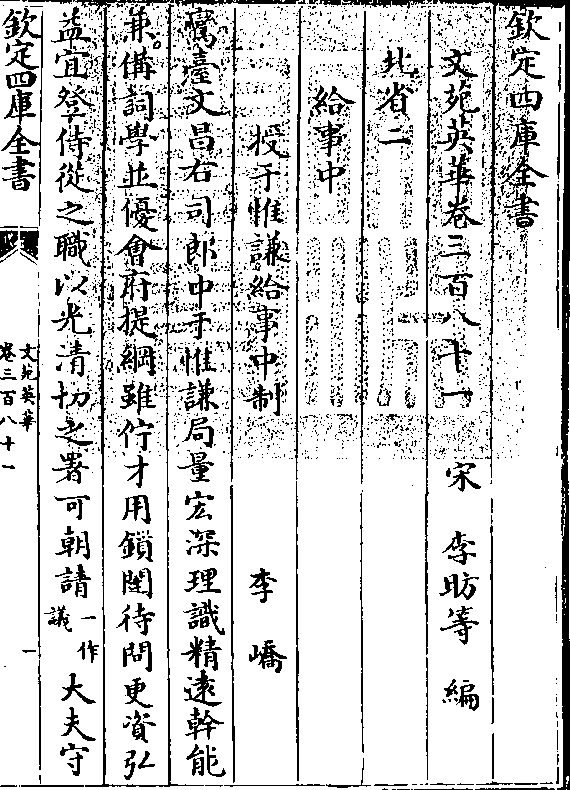 欽定四庫全書
文苑英華卷三百八十一
宋 李昉等 編
北省二
給事中
授于惟謙給事中制
李嶠
鸞臺文昌右司郎中于惟謙局量宏深理識精遠幹能
兼備詞學並優會府提綱雖佇才用鎖闈待問更資弘
益宜登侍從之職以光清切之署可朝請一作議大夫守
欽定四庫全書
文苑英華
卷三百八十一
一